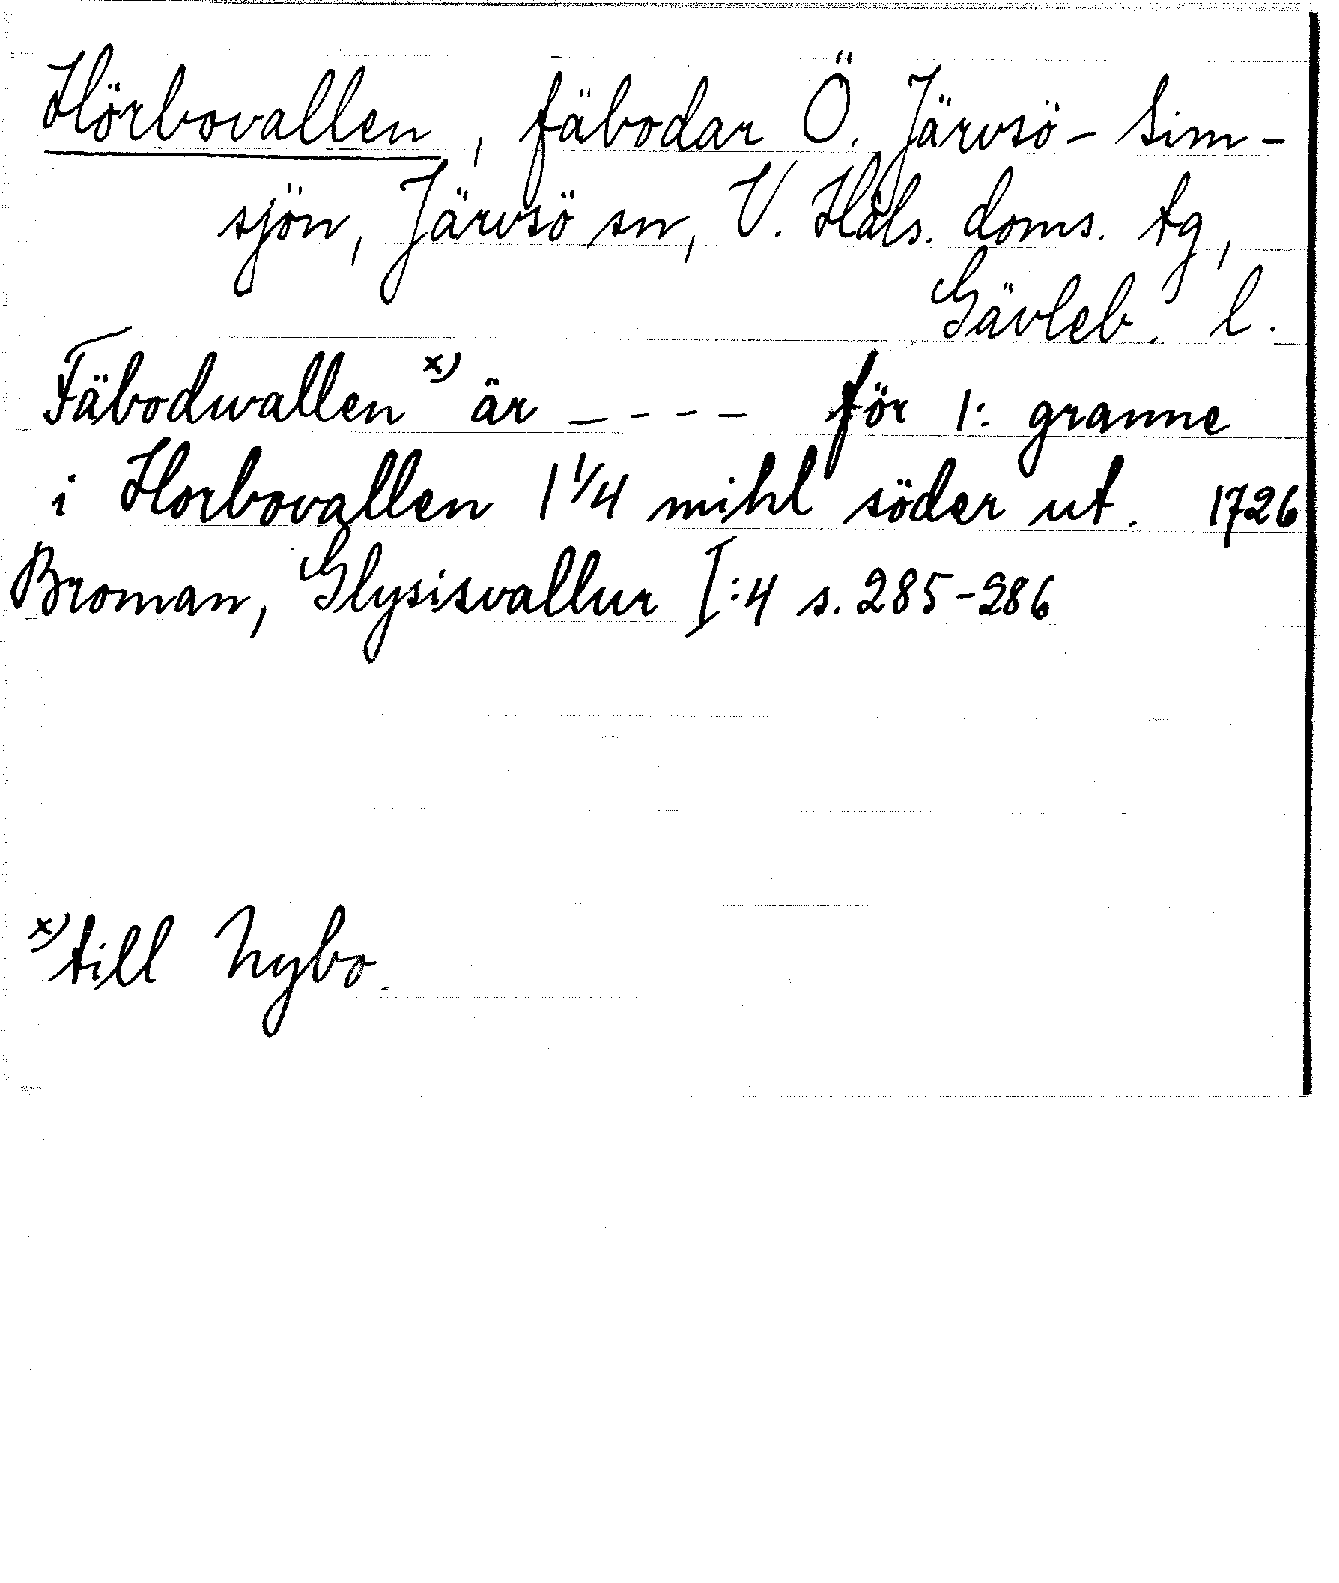 Hörbovallen, fäbodar Ö. Järvsö-Sim-
sjön, Järvsö sn, V. Häls. doms. tg,
Gävleb. l.
Fäbodwallen x) är _ - - - för 1: granne
i Horbovallen 1 1/4 mihl söder ut. 1726
Broman, Glysisvallur I:4 s. 285-286
x) till Nybo.